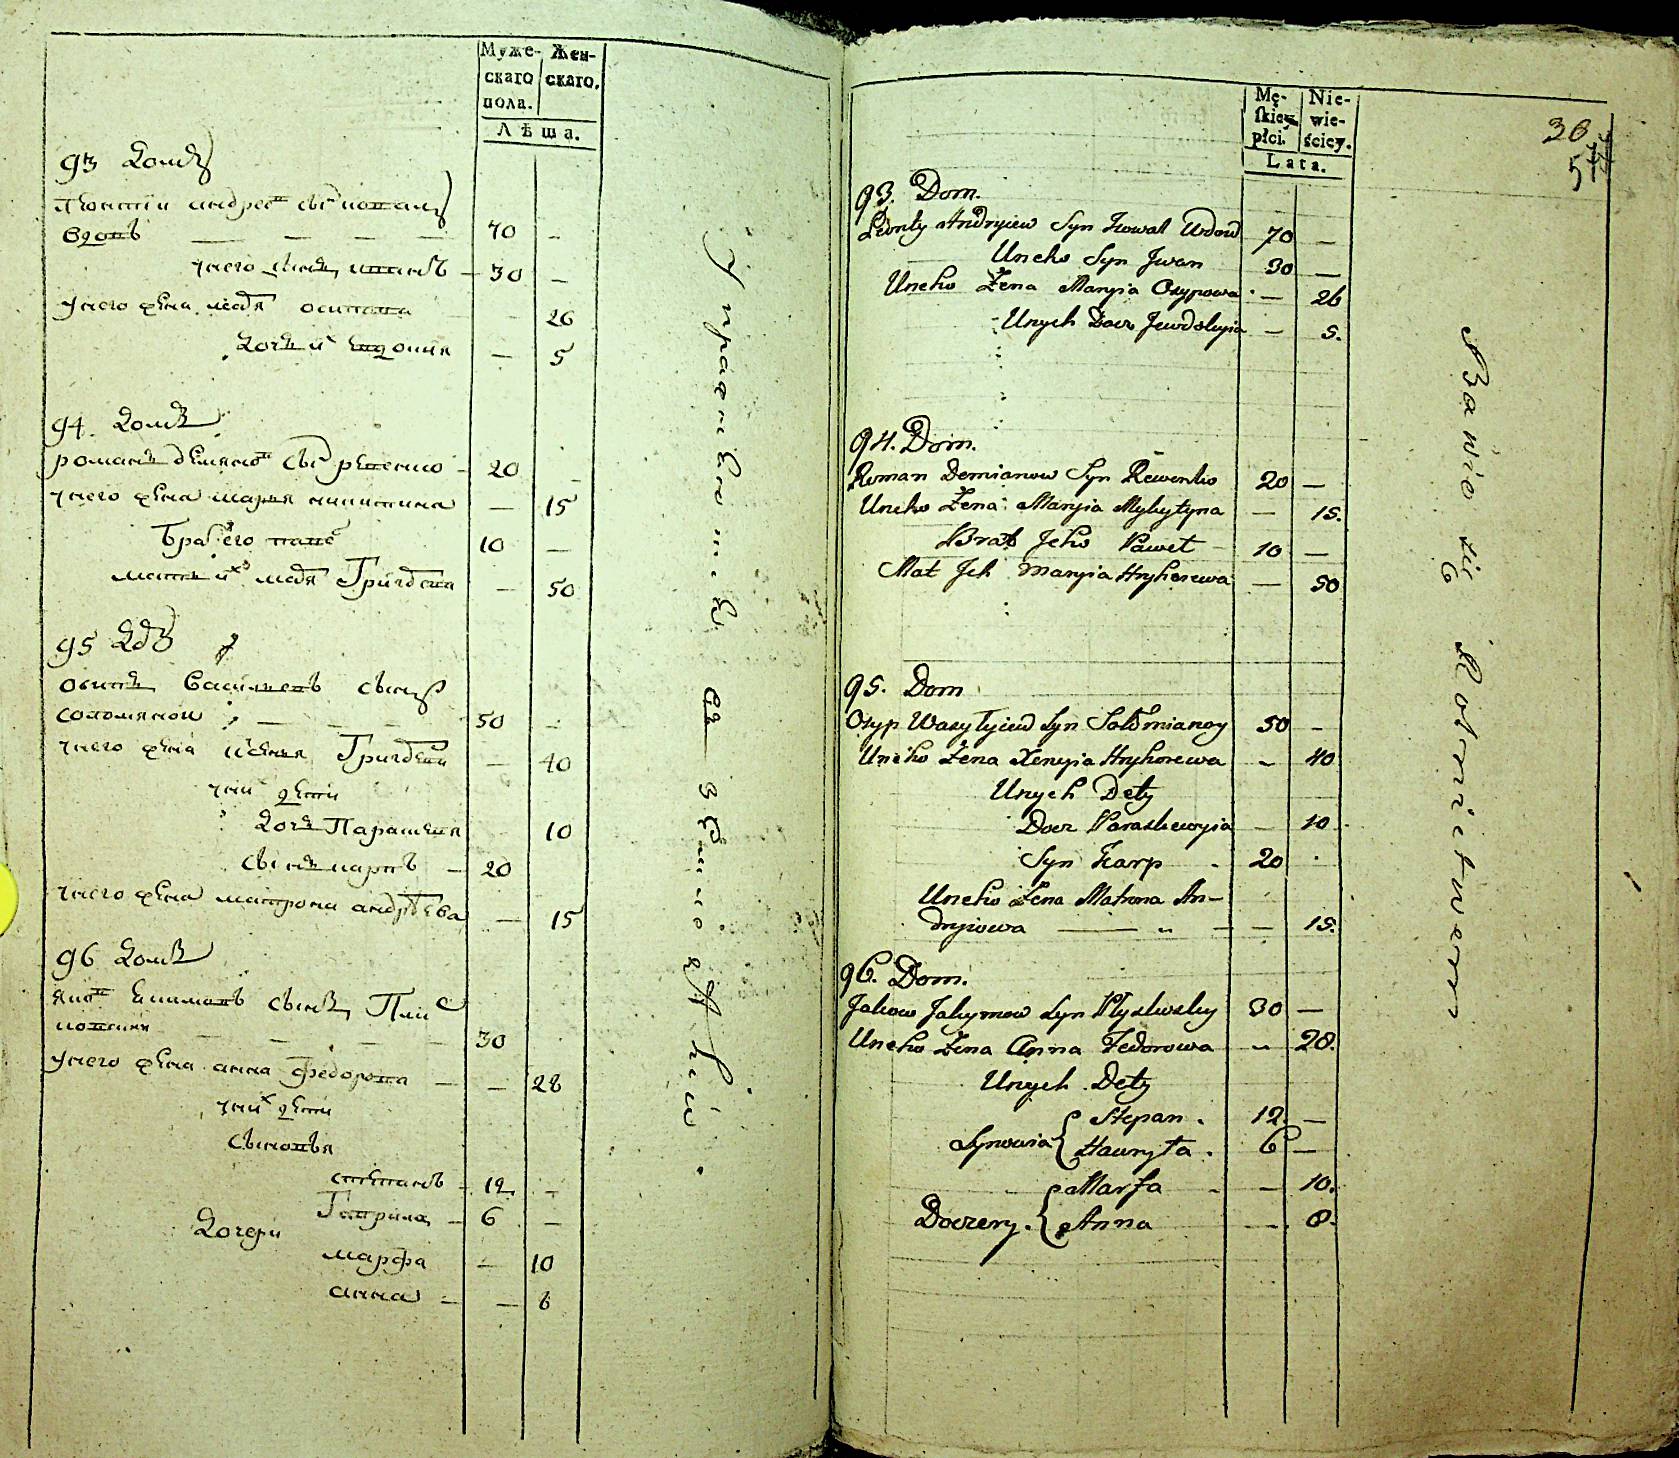 Муже-
скаго
пола.
Жен-
скаго.
Лѣта.
93 домъ
Леонтіи андреев сын ковалъ
вдовъ — — — — 70 —
унего сынъ иванъ — 30 —
унего жена марья осипова 26
дочь их евдокия — 5
94. домъ
романъ демянов сын ревенко - 20
унего жена марья никитина — 15
братъ его павел 10 —
мать их марья Григорева — 50
95 домъ
осипъ васильевъ сынъ
соломяной — — — 50 —
унего жена ксенья Григорева — 40
у них дети
дочь Парасковия 10
сынъ карпъ — 20
унего жена матрона андреева — 15
96 домъ
яков екимовъ сынъ Плис
ковский — — — 30
Унего жена анна федорова — — 28
у них дети
сыновья
степанъ - 12 —
Гаврила — 6 —
дочери
марфа — 10
анна — — 8
Упражняются в земледелии
Mę-
skiey
płci.
Nie-
wie-
ściey.
Lata.
36
577
93. Dom.
Leonty Andryiew Syn Kowal Wdow 70 —
Uneho Syn Jwan 30 —
Uneho Żena Maryia Osypowa — 26
Unych Docz Jewdokyia — 5.
94. Dom.
Roman Demianow Syn Rewenko 20 —
Uneho Żena Maryia Mykytyna — 15.
Brat Jeho Paweł — 10 —
Mat Jch Maryia Hryhorewa — 50
95. Dom
Osyp Wasyłyiew Syn Sołomianoy 50 —
Uneho Żena Xenyia Hryhorewa — 40
Unych Dety
Docz Paraskewyia — 10
Syn Karp 20
Uneho Żena Matrona An-
dryiowa — „ — — 15.
96. Dom.
Jakow Jakymow Syn Płyskwsky 30 —
Uneho Żena Anna Fedorowa „ 28.
Unych Dety
Synowia { Stepan. 12. —
Hawryła. 6 —
Doczery. { Marfa — 10.
Anna — 8.
Bawio się Rolnictwem